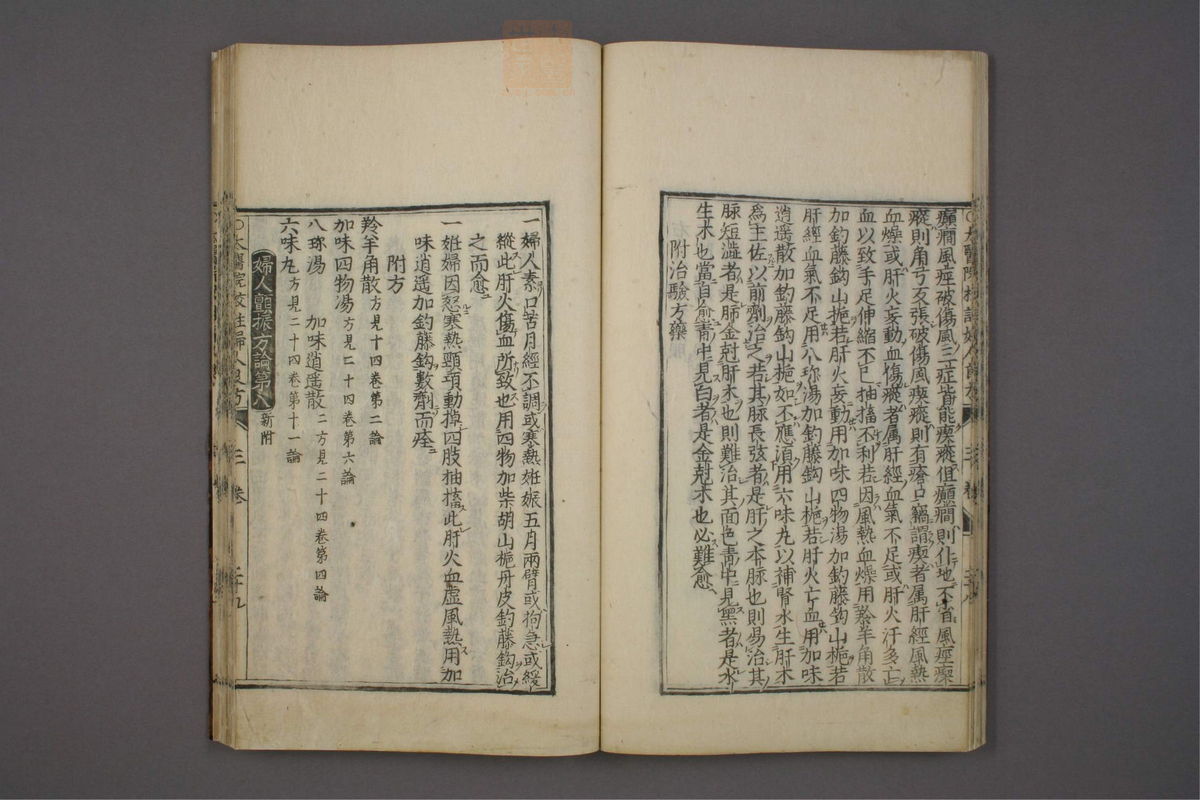 癲癇風痙破傷風三症皆能瘈瘲但癲癇則仆地不省風痙瘈
瘲則角弓反張破傷風瘈瘲則有瘡口竊謂瘈者属肝經風熱
血燥或肝火妄動血傷瘲者属肝經血氣不足或肝火汗多亡
血以致手足伸縮不已抽搐不利若因風熱血燥用羚羊角散
加釣藤鈎山梔若肝火妄動用加味四物湯加釣藤鈎山梔若
肝經血氣不足用八珎湯加釣藤鈎山梔若肝火亡血用加味
逍遥散加釣藤鈎山梔如不應須用六味丸以補腎水生肝木
爲主佐以前劑治之若其脉長弦者是肝之本脉也則易治其
脉短澁者是肺金尅肝木也則難治其面色青中見黒者是水
生木也當自愈青中見白者是金尅木也必難愈
附治驗方藥
一婦人素口苦月經不調或寒熱姙娠五月兩臂或拘急或緩
縱此肝火傷血所致也用四物加柴胡山梔丹皮釣藤鈎治
之而愈
一姙婦因怒寒熱頸項動掉四肢抽搐此肝火血虚風熱用加
味逍遥加釣藤鈎數劑而痊
附方
羚羊角散方見十四卷第二論
加味四物湯方見二十四卷第六論
八珎湯 加味逍遥散二方見二十四卷第四論
六味丸方見二十四卷第十一論
婦人顫振方論第八新附
○太醫院校註婦人良方 三卷 二十九